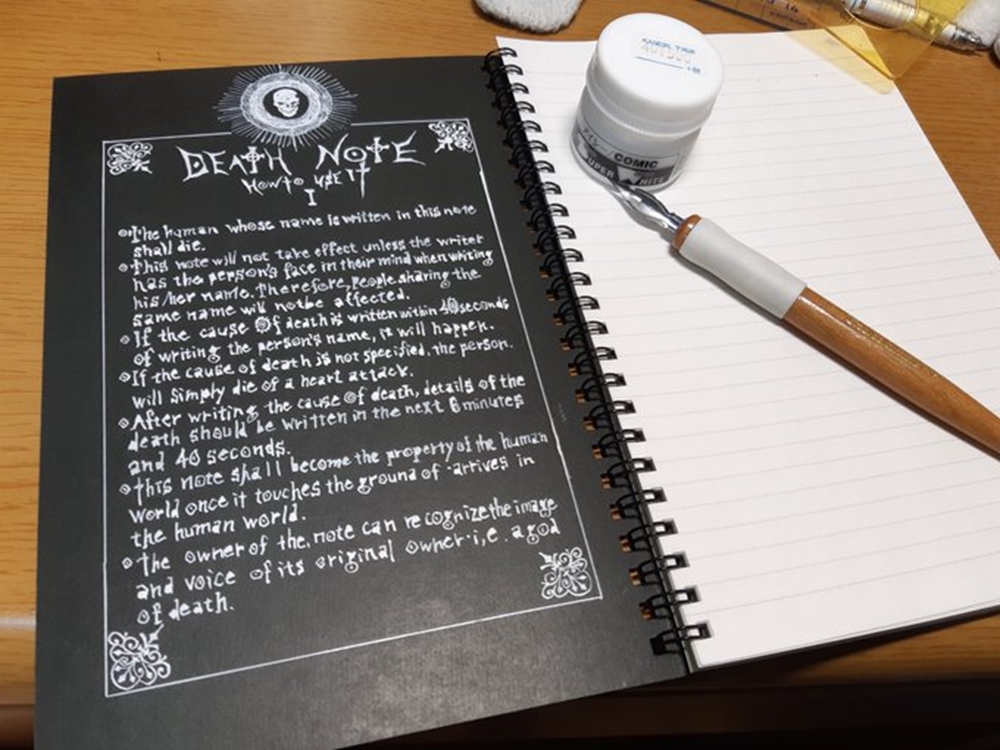 DEATH NOTE
HOW TO USE IT
I
The human whose name is written in this note
shall die.
This note will not take effect unless the writer
has the person's face in their mind when writing
his/her name. Therefore, people sharing the
same name will not be affected.
If the cause of death is written within 40 seconds
of writing the person's name, it will happen.
If the cause of death is not specified, the person.
will simply die of a heart attack.
After writing the cause of death, details of the
death should be written in the next 6 minutes
and 40 seconds.
this note shall become the property of the human
world once it touches the ground of arrives in
the human world.
the owner of the note can recognize the image
and voice of its original owner, i,e. a god
of death.
COMIC
SUPER WHITE
16